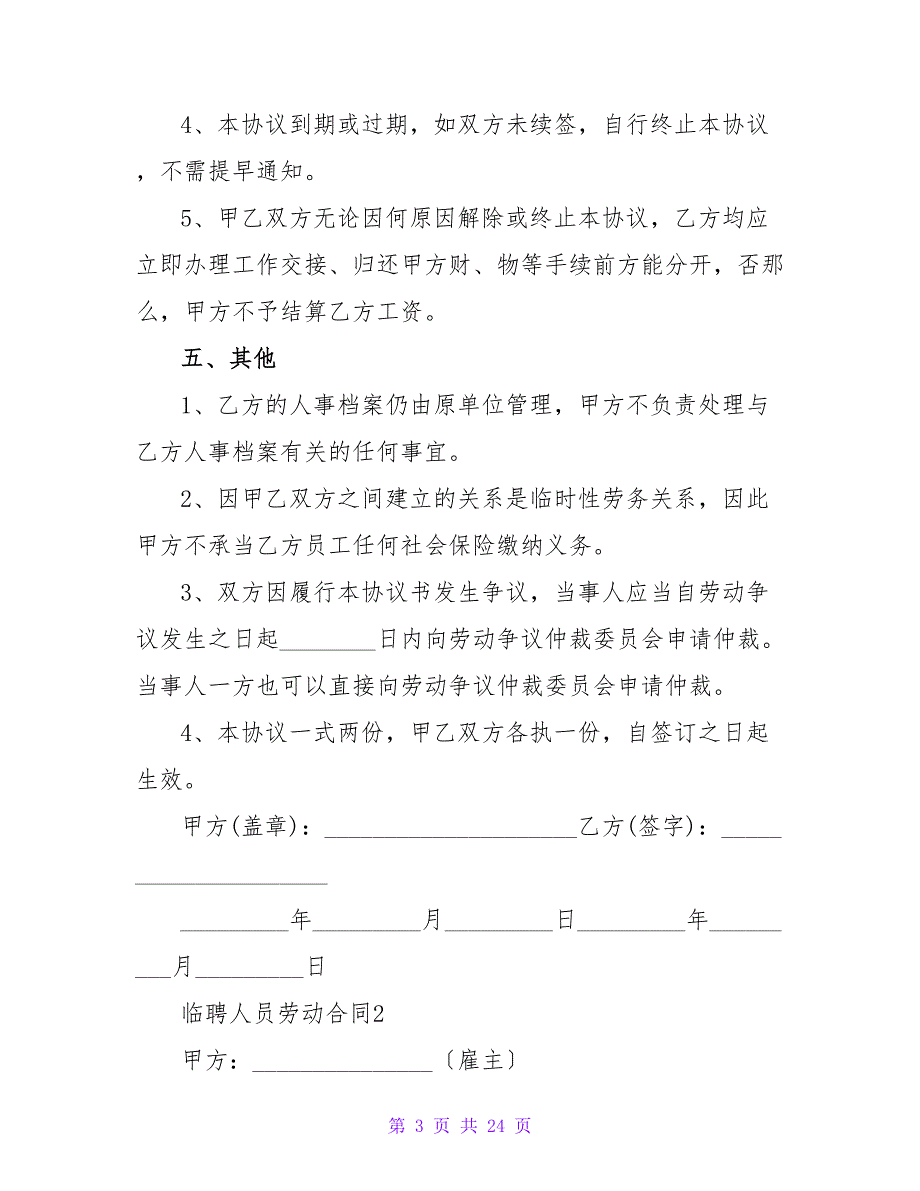 4、本协议到期或过期，如双方未续签，自行终止本协议
，不需提早通知。
5、甲乙双方无论因何原因解除或终止本协议，乙方均应
立即办理工作交接、归还甲方财、物等手续前方能分开，否那
么，甲方不予结算乙方工资。
五、其他
1、乙方的人事档案仍由原单位管理，甲方不负责处理与
乙方人事档案有关的任何事宜。
2、因甲乙双方之间建立的关系是临时性劳务关系，因此
甲方不承当乙方员工任何社会保险缴纳义务。
3、双方因履行本协议书发生争议，当事人应当自劳动争
议发生之日起________日内向劳动争议仲裁委员会申请仲裁。
当事人一方也可以直接向劳动争议仲裁委员会申请仲裁。
4、本协议一式两份，甲乙双方各执一份，自签订之日起
生效。
甲方(盖章)：_____________________乙方(签字)：_____
________________
_________年_________月_________日_________年______
___月_________日
临聘人员劳动合同2
甲方：_______________〔雇主〕
第 3 页 共 24 页